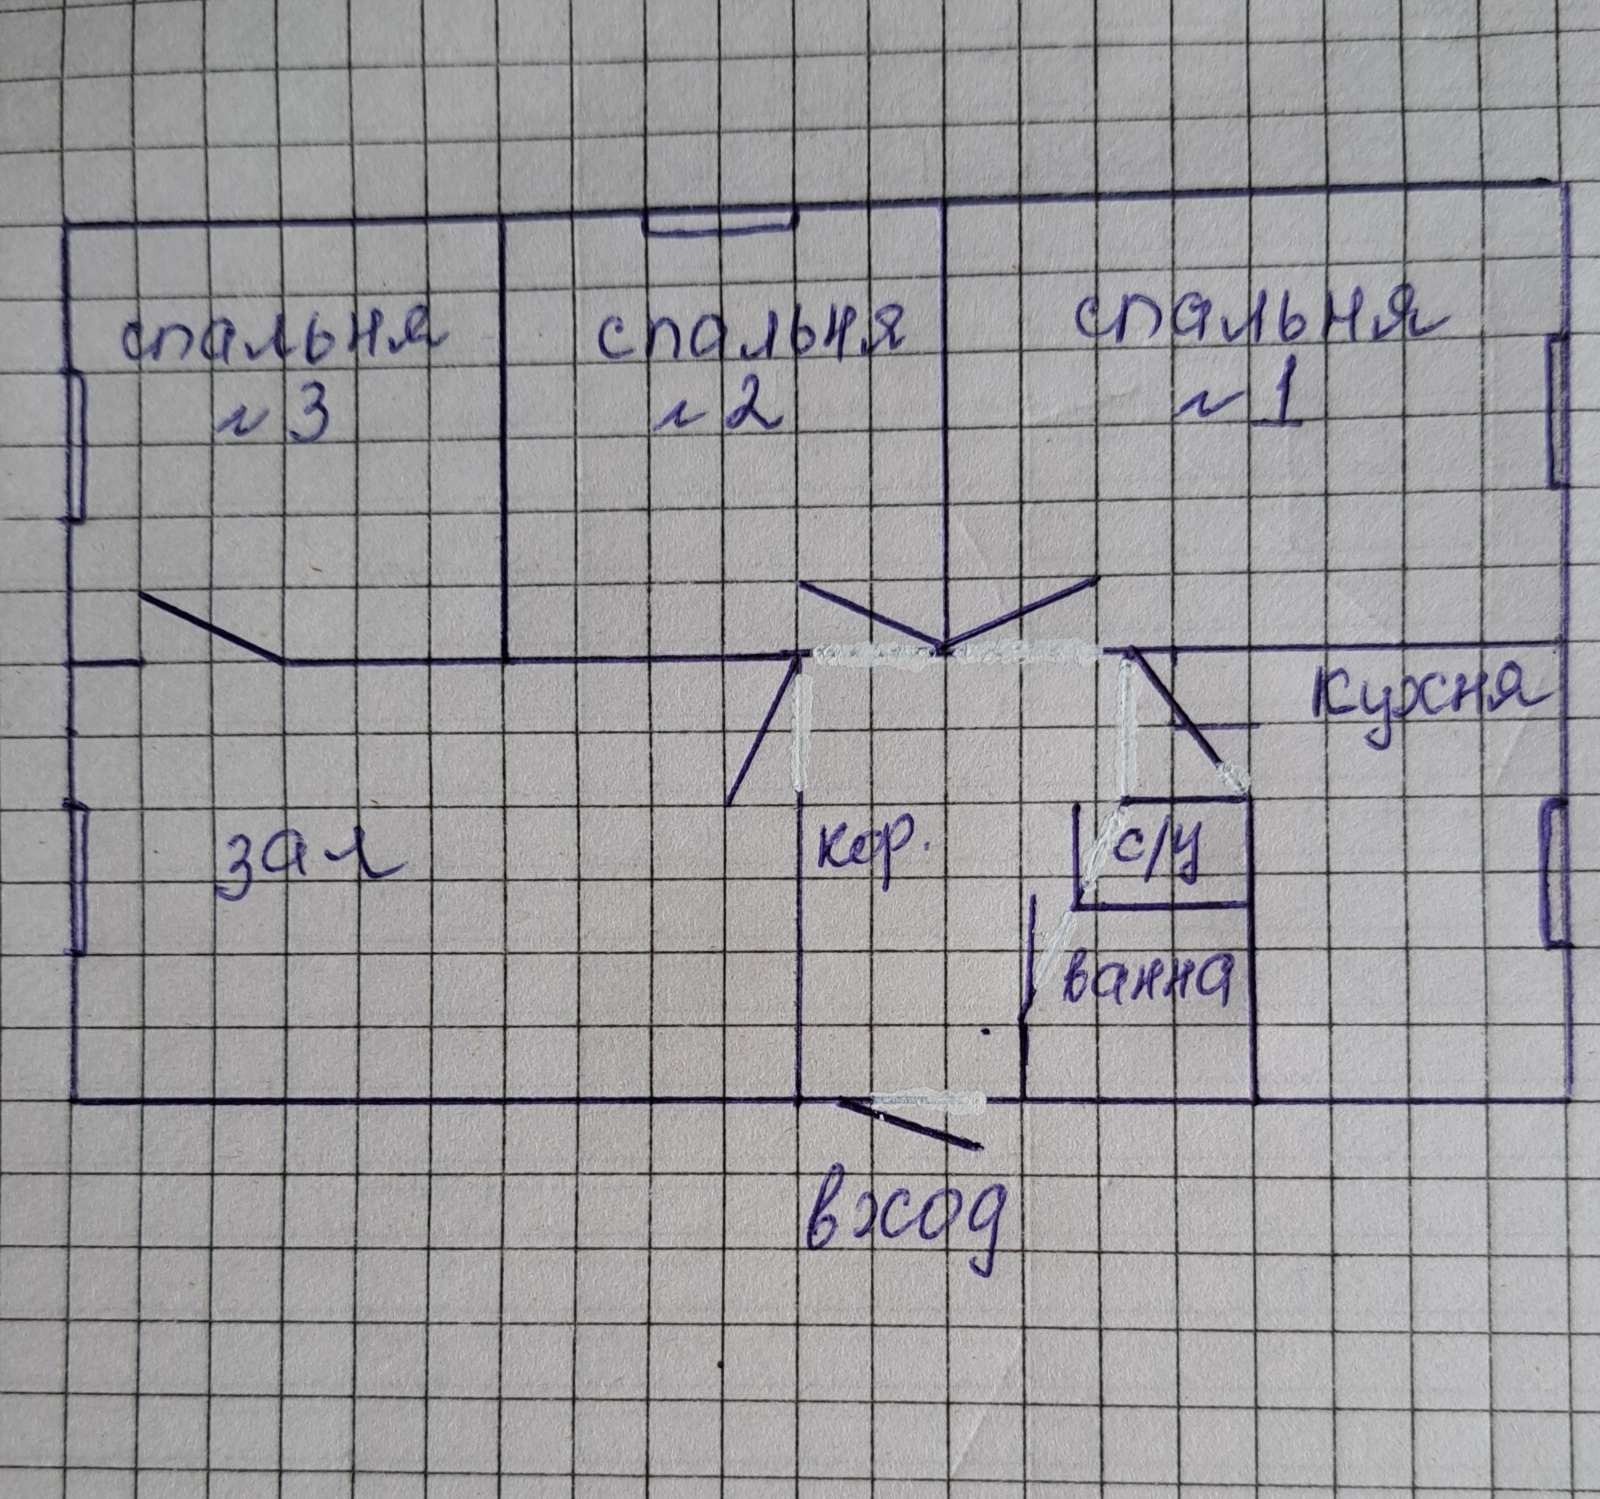 спальня
№3
спальня
№2
спальня
№1
кухня
зал
кор.
с/у
ванна
вход